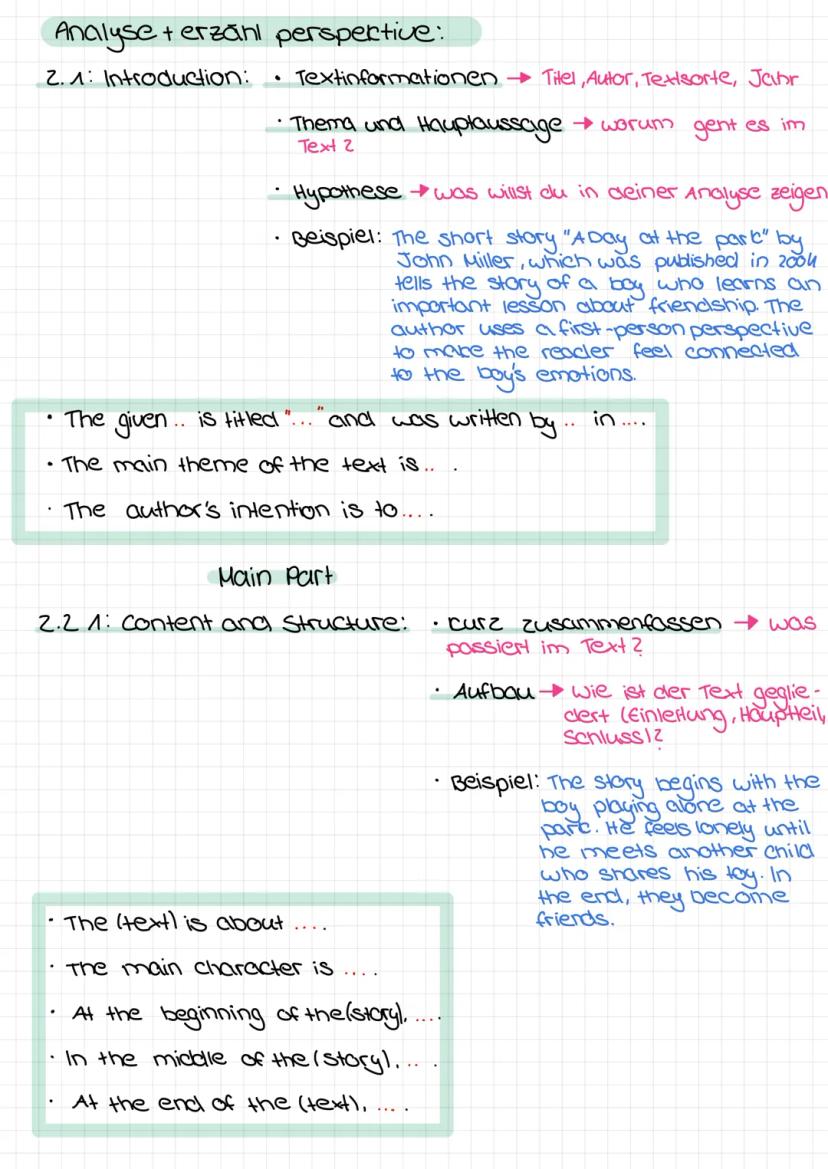 Analyse + erzähl perspective:
2.1: Introduction: • Textinformationen → Titel, Autor, Textsorte, Jahr
• Thema und Hauptaussage → worum geht es im
Text?
• Hypothese → was willst du in deiner Analyse zeigen
• Beispiel: The short story "A Day at the park" by
John Miller, which was published in 2004
tells the story of a boy who learns an
important lesson about friendship. The
author uses a first-person perspective
to make the reader feel connected
to the boy's emotions.
• The given .. is titled "..." and was written by .. in ....
• The main theme of the text is .. .
• The author's intention is to ....
Main Part
2.2 1: Content and Structure: • kurz zusammenfassen → was
passiert im Text?
• Aufbau → Wie ist der Text geglie-
dert (Einleitung, Hauptteil,
Schluss)?
• Beispiel: The story begins with the
boy playing alone at the
park. He feels lonely until
he meets another child
who shares his toy. In
the end, they become
friends.
• The (text) is about ....
• The main character is ....
• At the beginning of the (story), ....
• In the middle of the (story), .. .
• At the end of the (text), ... .